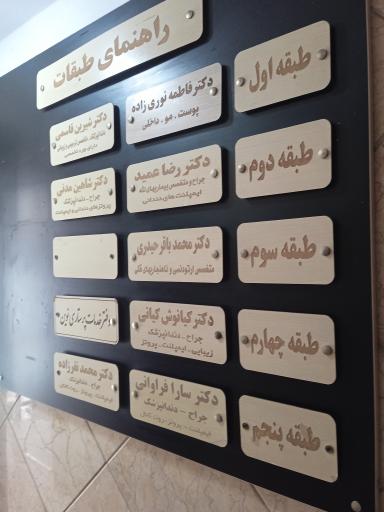 راهنمای طبقات
طبقه اول
دکتر فاطمه نوری زاده
پوست . مو . داخلی
دکتر شیرین قاسمی
طبقه دوم
دکتر رضا عمید
جراح و متخصص بیماریهای لثه
ایمپلنت های دندانی
دکتر شاهین مدنی
جراح - دندانپزشک
پروتزهای دندانی و ایمپلنت
طبقه سوم
دکتر محمد باقر حیدری
متخصص ارتودنسی و ناهنجاریهای فکی
طبقه چهارم
دکتر کیانوش کیانی
جراح - دندانپزشک
زیبایی . ایمپلنت . پروتز
دفتر خدمات پرستاری
طبقه پنجم
دکتر سارا فراوانی
جراح - دندانپزشک
ایمپلنت - پروتز - روت کانال
دکتر محمد نفرزاده
جراح - دندانپزشک
ایمپلنت - پروتز - روت کانال